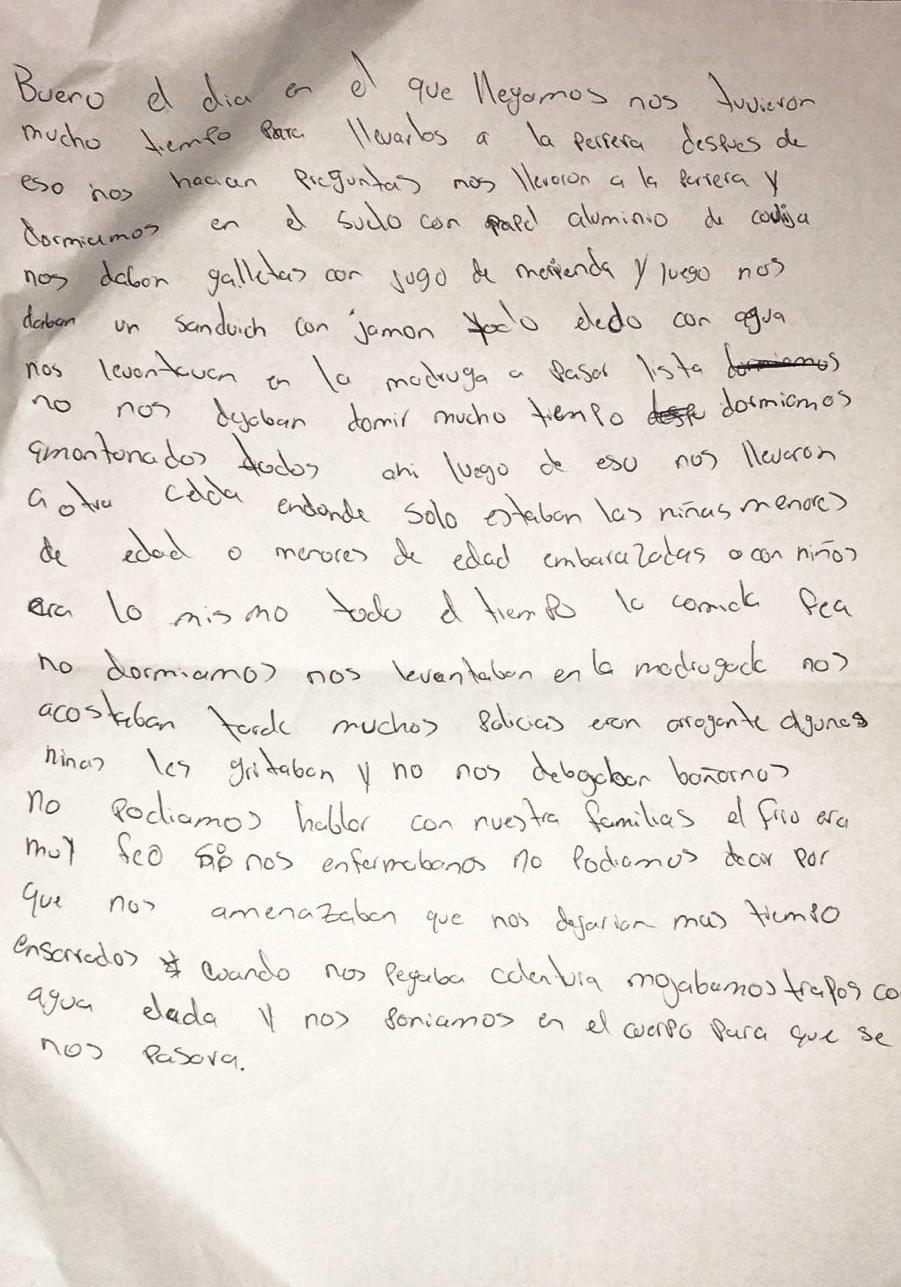 Bueno el dia en el que llegamos nos tuvieron
mucho tiempo para llevarlos a la perrera despues de
eso nos hacian preguntas nos llevaron a la perrera y
dormiamos en el suelo con papel aluminio de covija
nos dabon galletas con jugo de merienda y luego nos
daban un sandwich con jamon todo elado con agua
nos levantavan en la madruga a pasar lista dormiamos
no nos dejaban domir mucho tiempo despe dormiamos
amontonados todos ahi luego de eso nos llevaron
a otra celda endonde solo estaban las niñas menores
de edad o menores de edad embarazadas o con niños
era lo mismo todo el tiempo la comida fea
no dormiamos nos levantaban en la madrugada nos
acostaban tarde muchos policias eran arrogante algunas
ninas les gritaban y no nos debajaban bañarnos
no podiamos hablar con nuestra familias el frio era
muy feo nos enfermabanos no podiamos decir por
que nos amenazaban que nos dejarian mas tiempo
ensarrados cuando nos pegaba calentura mojabamos trapos co
agua elada y nos poniamos en el cuerpo para que se
nos pasara.